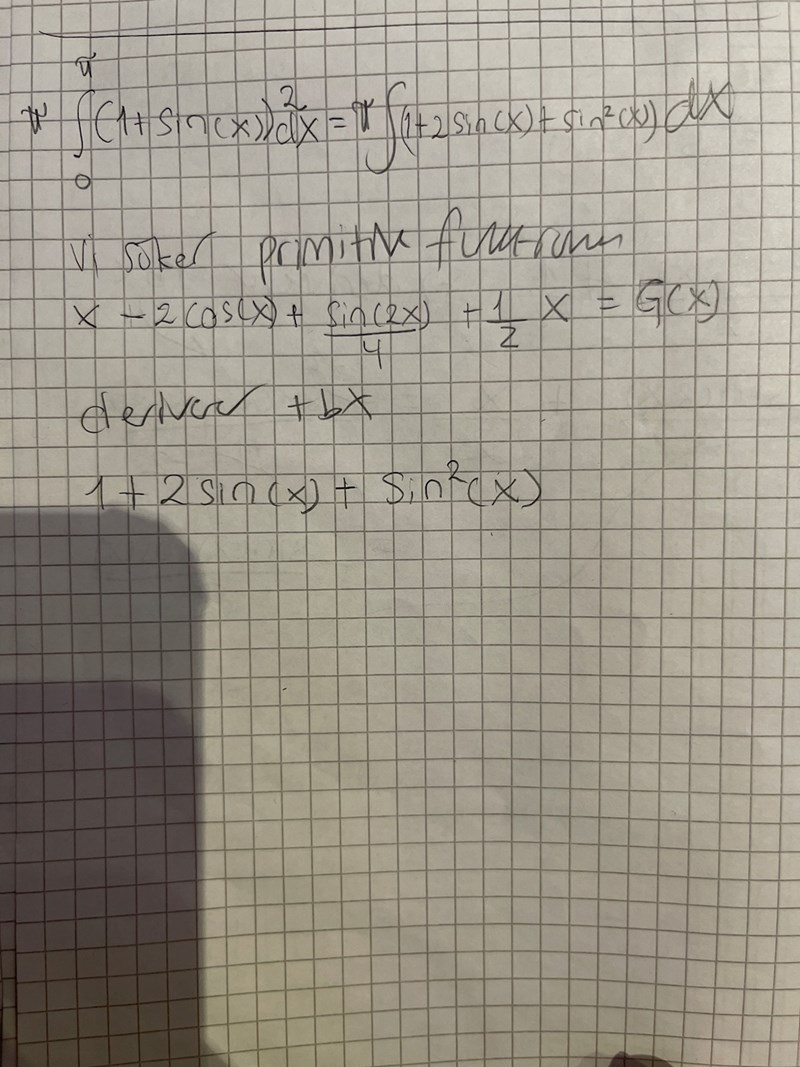 π ∫₀^π (1+sin(x))² dx = π ∫(1+2sin(x)+sin²(x)) dx
Vi söker primitiv funktion
x - 2cos(x) + sin(2x)/4 + 1/2 x = G(x)
derivar +bx
1+2sin(x)+sin²(x)